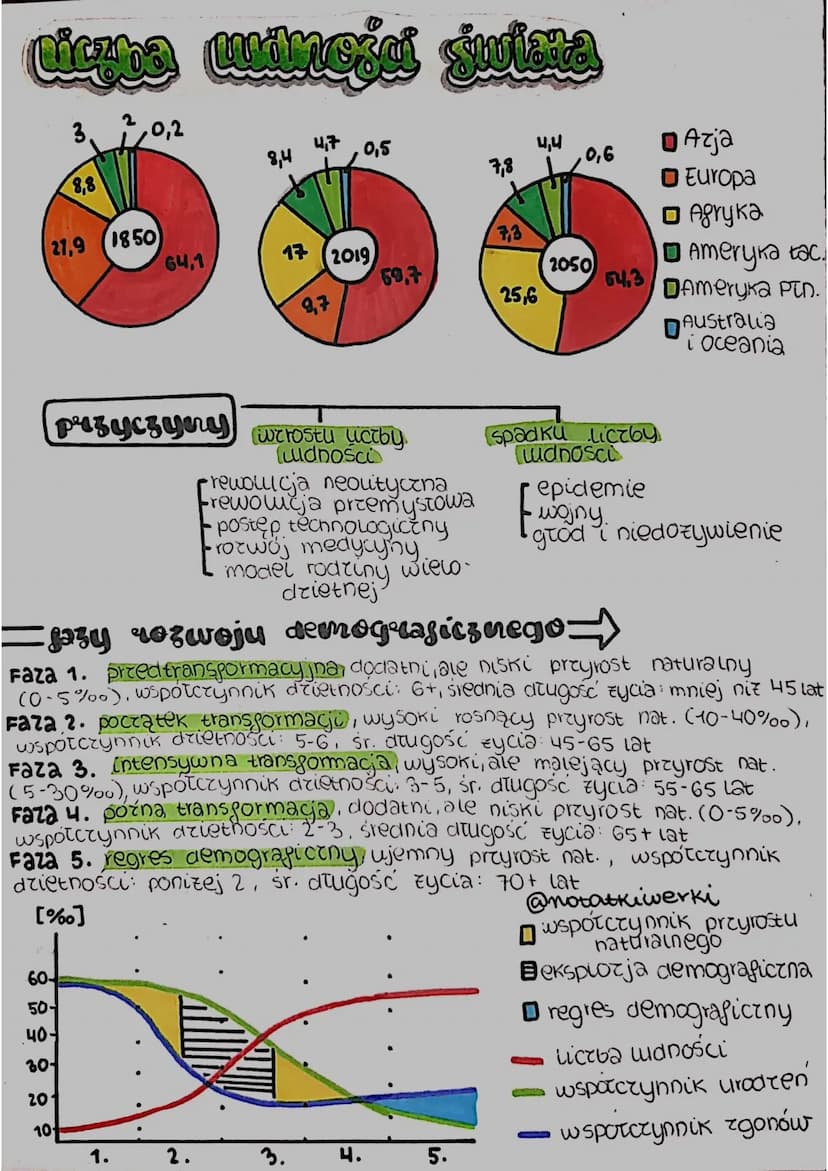 liczba ludności świata
3 2 0,2
8,8
27,9 1850 64,1
8,4 4,7 0,5
17 2019 59,7
9,7
7,8 4,4 0,6
7,3 2050
25,6 54,3
Azja
Europa
Afryka
Ameryka łac.
Ameryka Płn.
Australia
i oceania
przyczyny
wzrostu liczby
ludności
rewolucja neolityczna
rewolucja przemysłowa
postęp technologiczny
rozwój medycyny
model rodziny wielo-
dzietnej
spadku liczby
ludności
epidemie
wojny
głód i niedożywienie
fazy rozwoju demograficznego
Faza 1. przedtransformacyjna, dodatni, ale niski przyrost naturalny
(0-5‰), współczynnik dzietności: 6+, średnia długość życia: mniej niż 45 lat
Faza 2. początek transformacji, wysoki rosnący przyrost nat. (10-40‰),
współczynnik dzietności: 5-6, śr. długość życia: 45-65 lat
Faza 3. intensywna transformacja, wysoki, ale malejący przyrost nat.
(5-30‰), współczynnik dzietności: 3-5, śr. długość życia: 55-65 lat
Faza 4. późna transformacja, dodatni, ale niski przyrost nat. (0-5‰),
współczynnik dzietności: 2-3, średnia długość życia: 65+ lat
Faza 5. regres demograficzny, ujemny przyrost nat., współczynnik
dzietności: poniżej 2, śr. długość życia: 70+ lat
@notatkiwerki
[‰]
60
50
40
30
20
10
1. 2. 3. 4. 5.
współczynnik przyrostu
naturalnego
eksplozja demograficzna
regres demograficzny
liczba ludności
współczynnik urodzeń
współczynnik zgonów